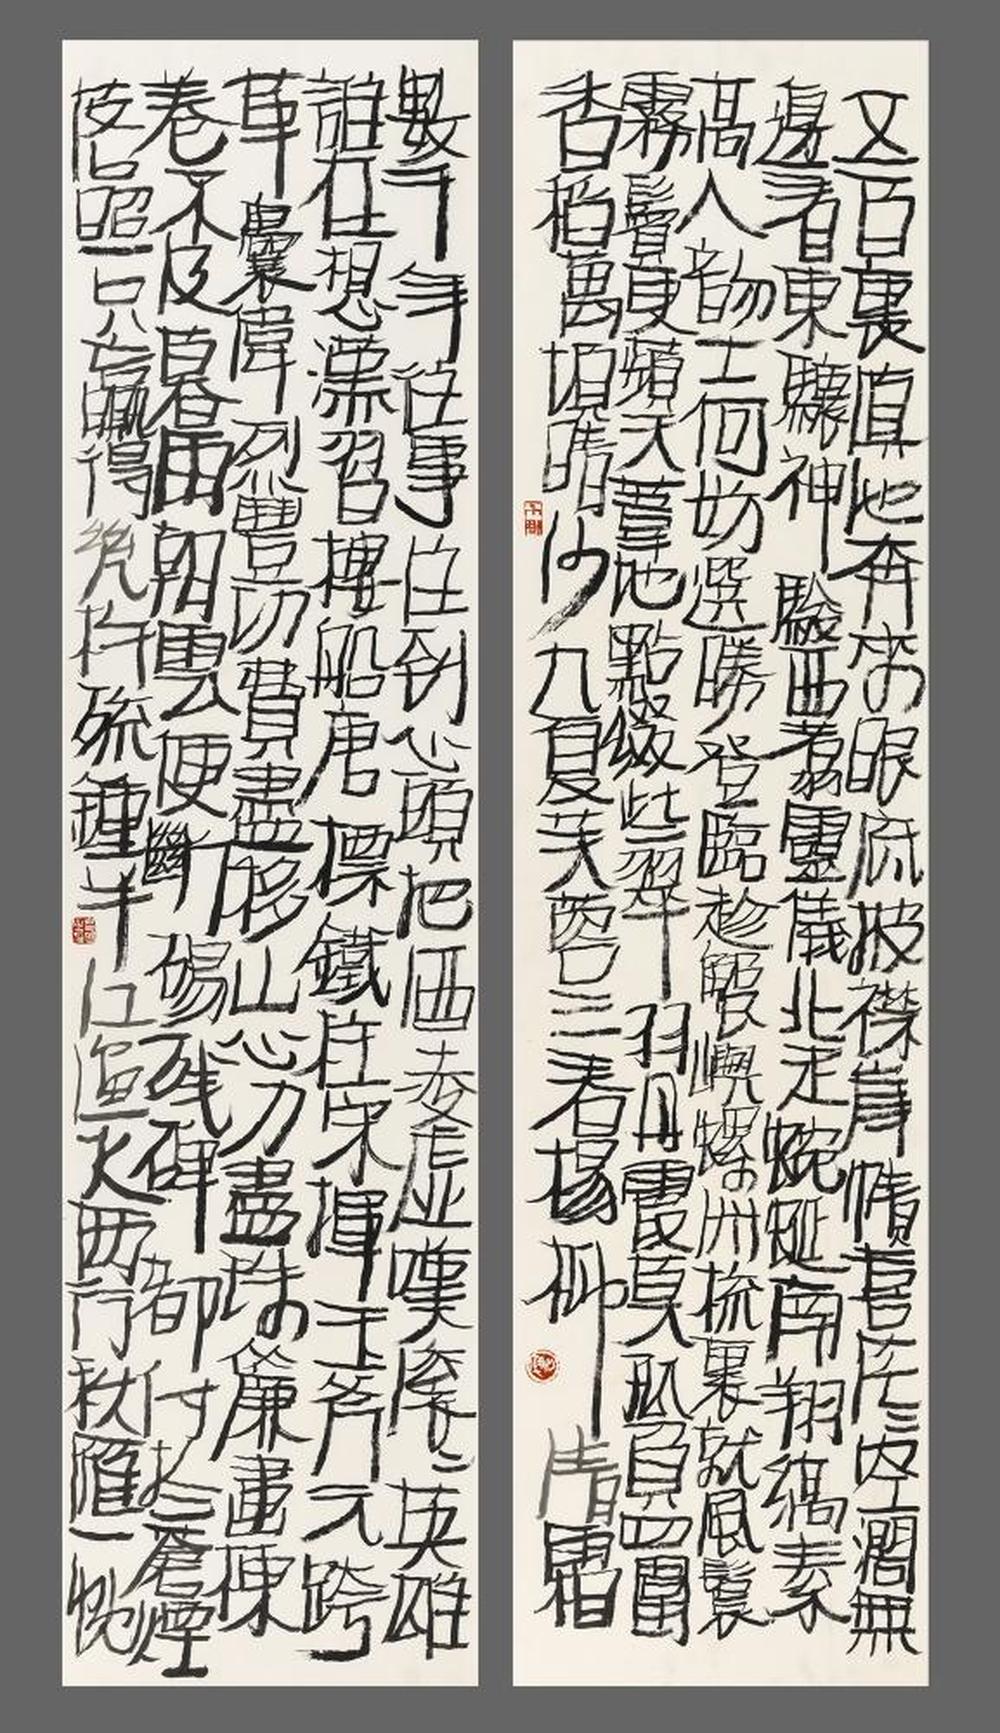 五百裏滇池奔來眼底披襟岸幘喜茫〻空闊無
邊看東驤神駿西翥靈儀北走蜿蜒南翔縞素
高人韻士何妨選勝登臨趁蟹嶼螺洲梳裹就風鬟
霧鬢更蘋天葦地點綴些翠羽丹霞莫孤負四圍
香稻萬頃晴沙九夏芙蓉三春楊柳
數千年往事注到心頭把酒凌虛嘆滾〻英雄
誰在想漢習樓船唐標鐵柱宋揮玉斧元跨
革囊偉烈豐功費盡移山心力盡珠簾畫棟
卷不及暮雨朝雲便斷碣殘碑都付與蒼煙
落照只贏得幾杵疏鐘半江漁火兩行秋雁一枕
清霜